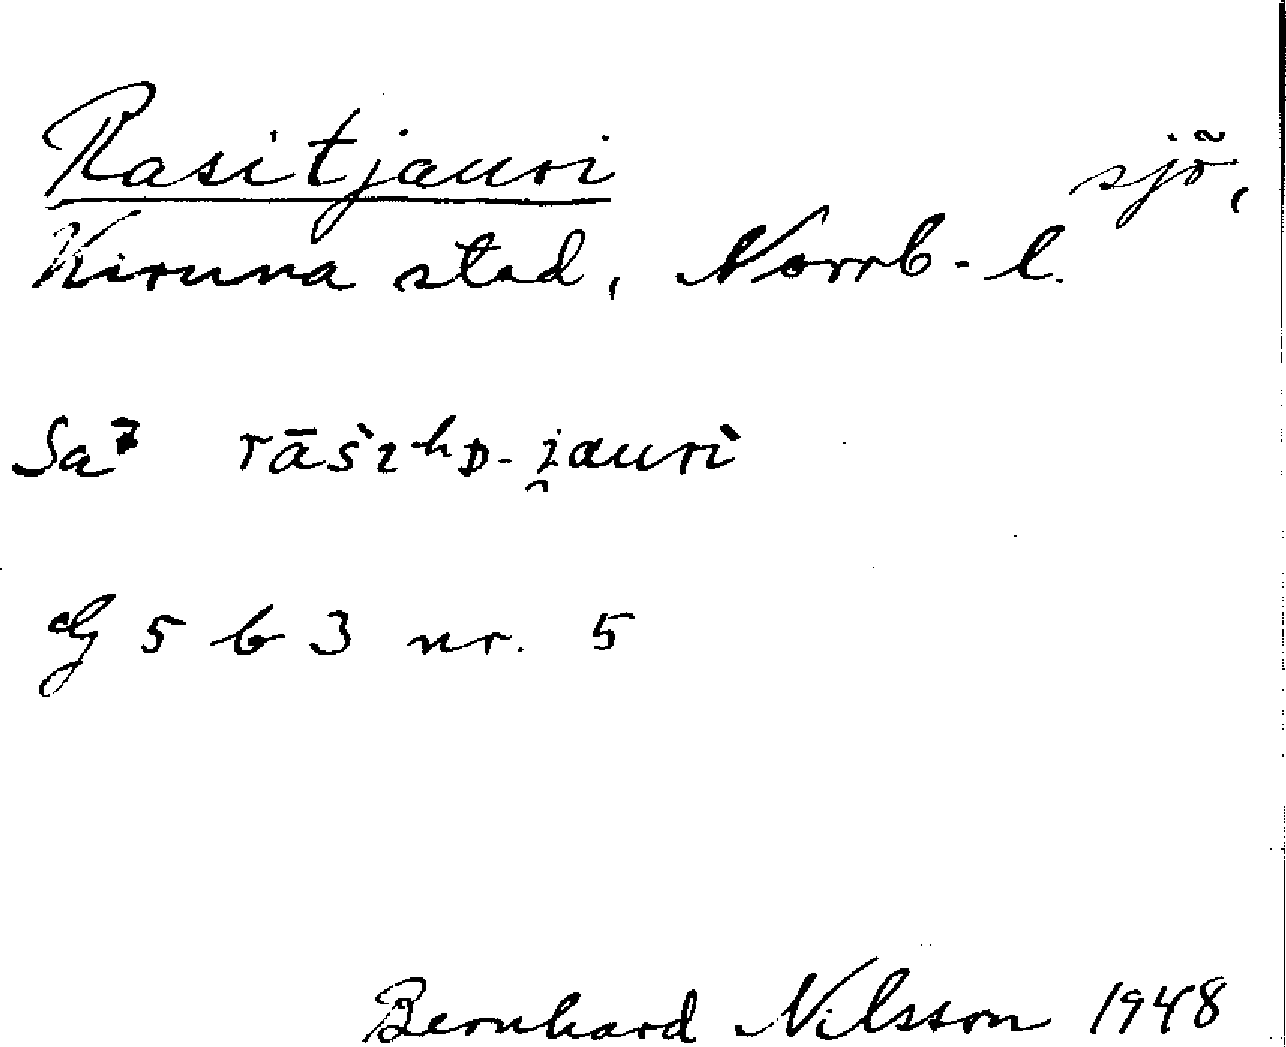 Rasitjauri sjö,
Kiruna stad, Norrb. l.
Sa⁷ rāšìʰᴅ-i̯aurì
G 5 b 3 nr. 5
Bernhard Nilsson 1948